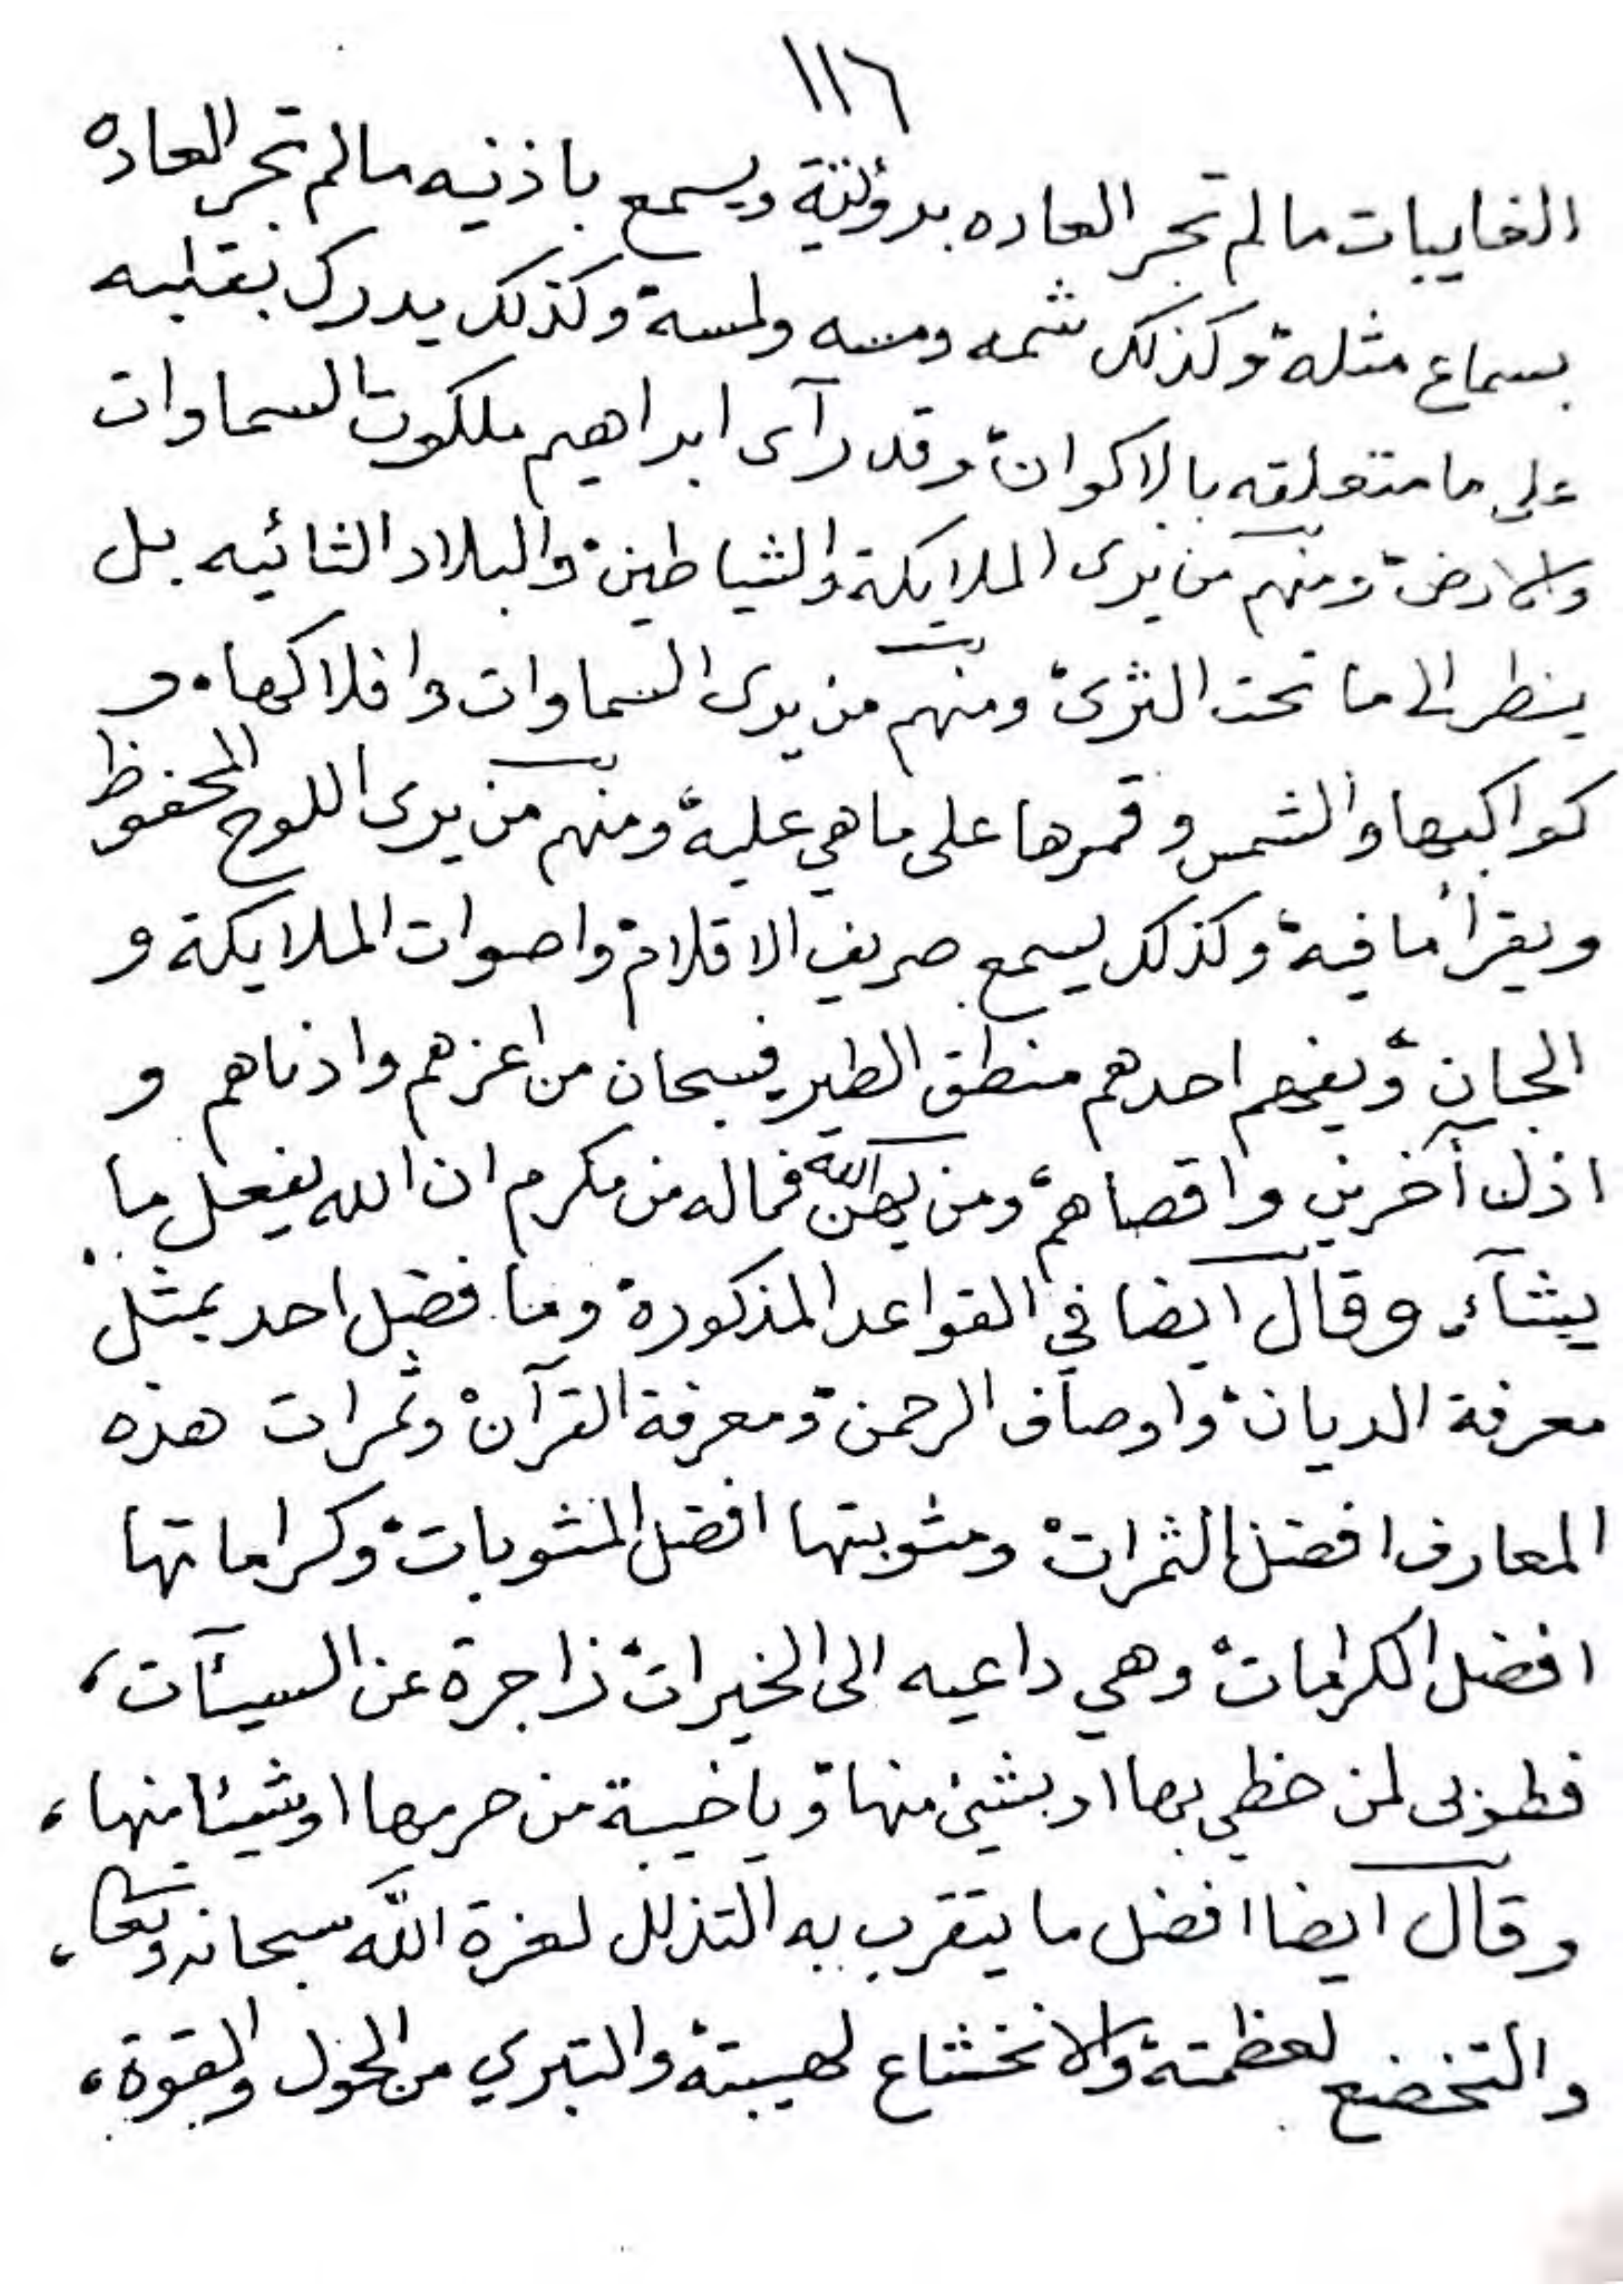 ١١٦
الغايبات مالم تجر العاده برؤيتة ويسمع باذنيه مالم تجر العاده
بسماع مثلة وكذلك شمه ومسه ولمسة وكذلك يدرك بقلبه
على ما متعلقه بالاكوان وقد رآى ابراهيم ملكوت السماوات
والارض ومنهم من يرى الملايكة والشياطين والبلاد النائيه بل
ينظر الى ما تحت الثرى ومنهم من يرى السماوات وافلاكها و
كواكبها والشمس وقمرها على ماهي علية ومنهم من يرى اللوح المحفوظ
ويقرأ ما فية وكذلك يسمع صريف الاقلام واصوات الملايكة و
الجان ويفهم احدهم منطق الطير فسبحان من اعزهم وادناهم و
اذل آخرين واقصاهم ومن يهن الله فماله من مكرم ان الله يفعل ما
يشآء وقال ايضا في القواعد المذكورة وما فضل احد بمثل
معرفة الديان واوصاف الرحمن ومعرفة القرآن وثمرات هذه
المعارف افضل الثمرات ومثوبتها افضل المثوبات وكراماتها
افضل الكرامات وهي داعيه الى الخيرات زاجرة عن السيئآت،
فطوبى لمن حظي بها او بشيئ منها ويا خيبة من حرمها او شيئا منها،
وقال ايضا افضل ما يتقرب به التذلل لعزة الله سبحانه وتعالى،
والتخضع لعظمتة والانخشاع لهيبتة والتبري من الحول والقوة،